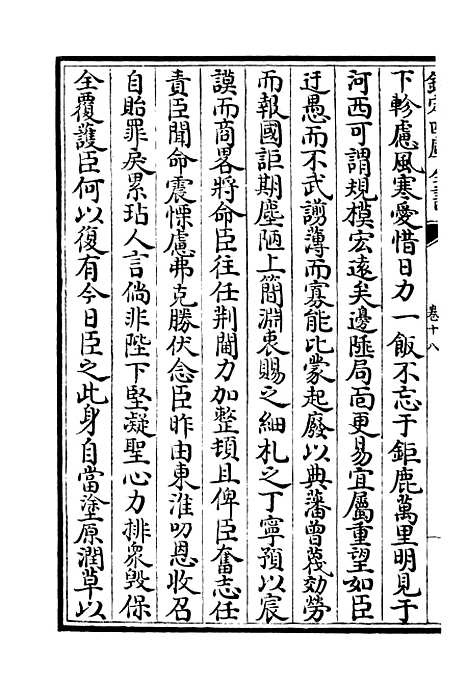 欽定四庫全書
卷十八
下軫慮風寒愛惜日力一飯不忘于鉅鹿萬里明見于
河西可謂規模宏遠矣邊陲局面更易宜屬重望如臣
迂愚而不武謭薄而寡能比蒙起廢以典藩曽蔑効勞
而報國詎期塵陋上簡淵衷賜之細札之丁寧預以宸
謨而商畧將命臣往任荆閫力加整頓且俾臣奮志任
責臣聞命震慄慮弗克勝伏念臣昨由東淮叨恩收召
自貽罪戾累玷人言倘非陛下堅凝聖心力排衆毁保
全覆護臣何以復有今日臣之此身自當塗原潤草以